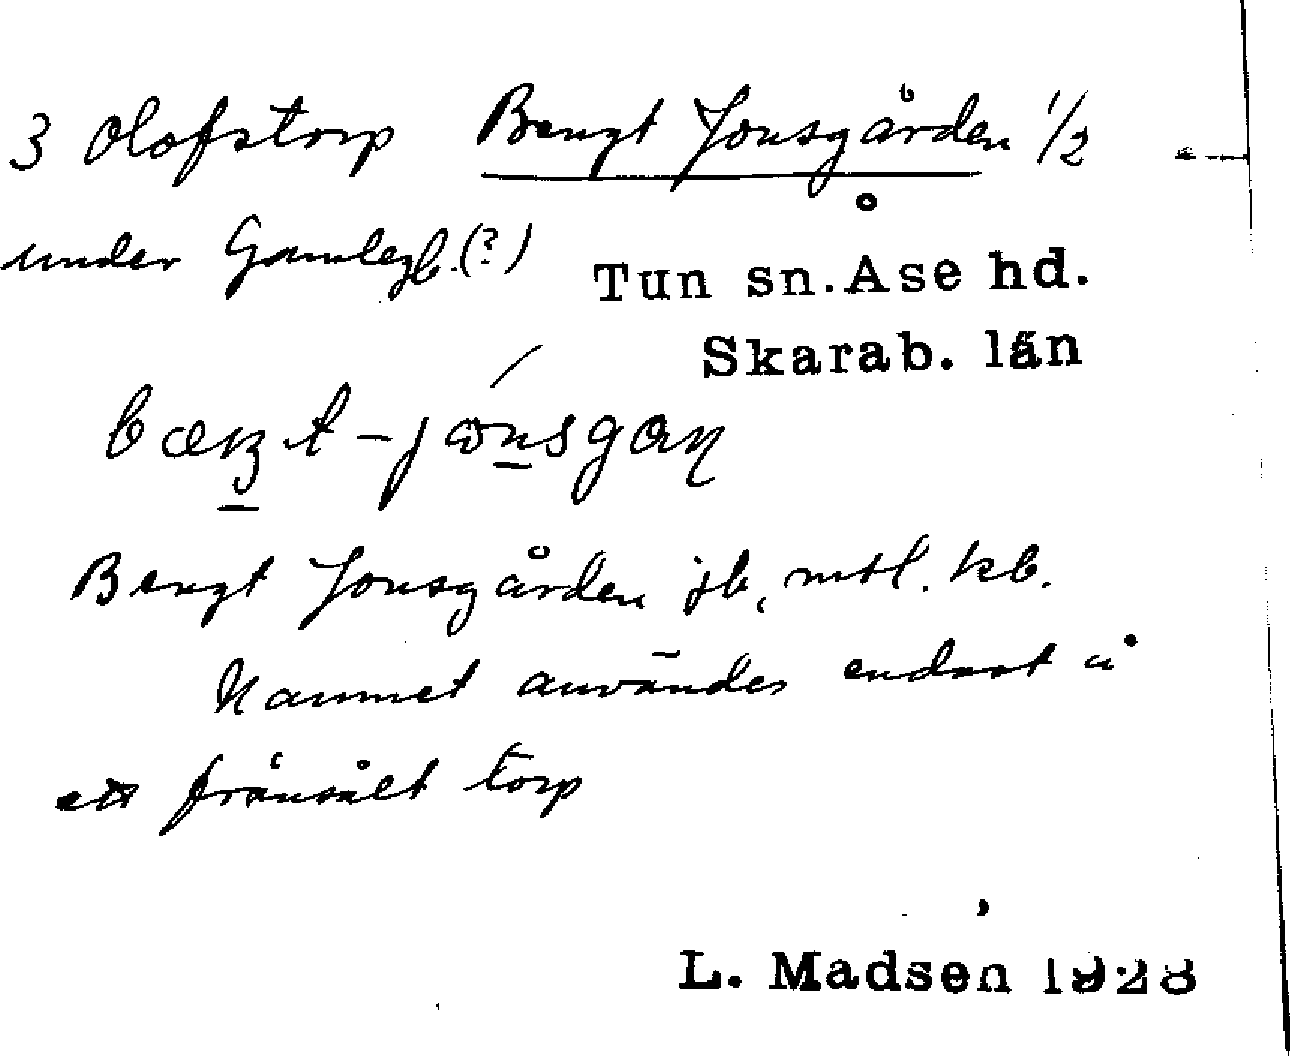 3 Olofstorp Bengt Jonsgården 1/2
under Gamlegb.(?)
Tun sn. Åse hd.
Skarab. län
bæŋt-jònsgaɳ
Bengt Jonsgården jb, mtl. kb.
Namnet användes endast å
ett frånsålt torp
L. Madsen 1928